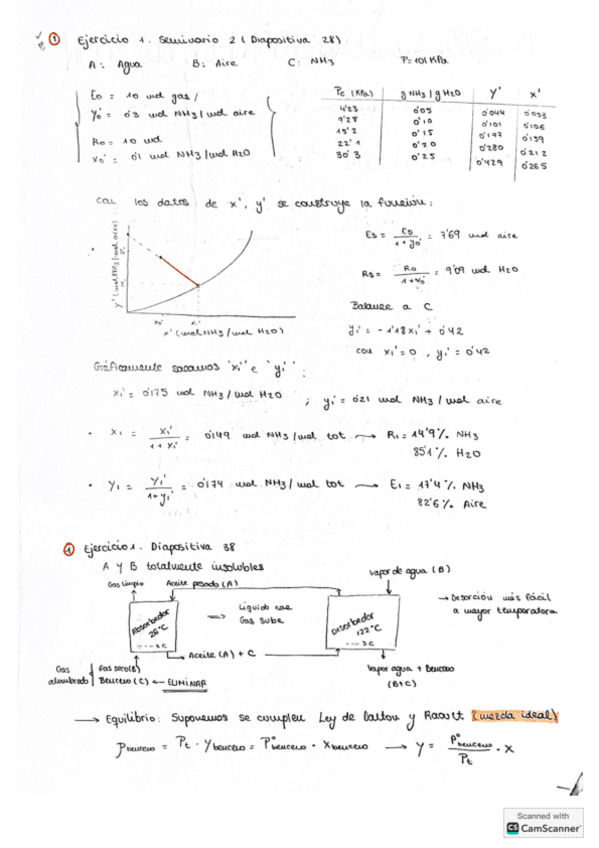 ① Ejercicio 1. Seminario 2 (Diapositiva 28)
A: Agua B: Aire C: NH3 P=101 KPa
E0 = 10 mol gas /
y0' = 0'3 mol NH3/mol aire
R0 = 10 mol
x0' = 0'1 mol NH3/mol H2O
Pc (KPa) g NH3/g H2O Y' x'
4'23 0'05 0'044 0'053
9'28 0'10 0'101 0'106
15'2 0'15 0'177 0'159
22'1 0'20 0'280 0'212
30'3 0'25 0'429 0'265
Con los datos de x', y' se construye la función:
y' (mol NH3/mol aire)
x0' x1'
x' (mol NH3/mol H2O)
Es = E0 / 1+y0' = 7'69 mol aire
Rs = R0 / 1+x0' = 9'09 mol H2O
Balance a C
y1' = -1'18x1' + 0'42
con x1'=0, y1' = 0'42
Gráficamente sacamos "x1'" e "y1'":
x1' = 0'175 mol NH3/mol H2O ; y1' = 0'21 mol NH3/mol aire
• x1 = x1' / 1+x1' = 0'149 mol NH3/mol tot → R1 = 14'9% NH3
85'1% H2O
• y1 = y1' / 1+y1' = 0'174 mol NH3/mol tot → E1 = 17'4% NH3
82'6% Aire
① Ejercicio 1. Diapositiva 38
A y B totalmente insolubles
Gas limpio Aceite pesado (A) vapor de agua (B)
Absorbedor 26°C
⇒ Líquido cae
Gas sube
Desorbedor 122°C
→ Desorción más fácil
a mayor temperatura
Aceite (A) + C
Gas alumbrado
Gas seco (B)
Benceno (C) ← ELIMINAR
Vapor agua + Benceno
(B+C)
→ Equilibrio: Suponemos se cumplen Ley de Dalton y Raoult (mezcla ideal)
Pbenceno = Pt · ybenceno = P°benceno · xbenceno → y = P°benceno / Pt · x
Scanned with
CS CamScanner